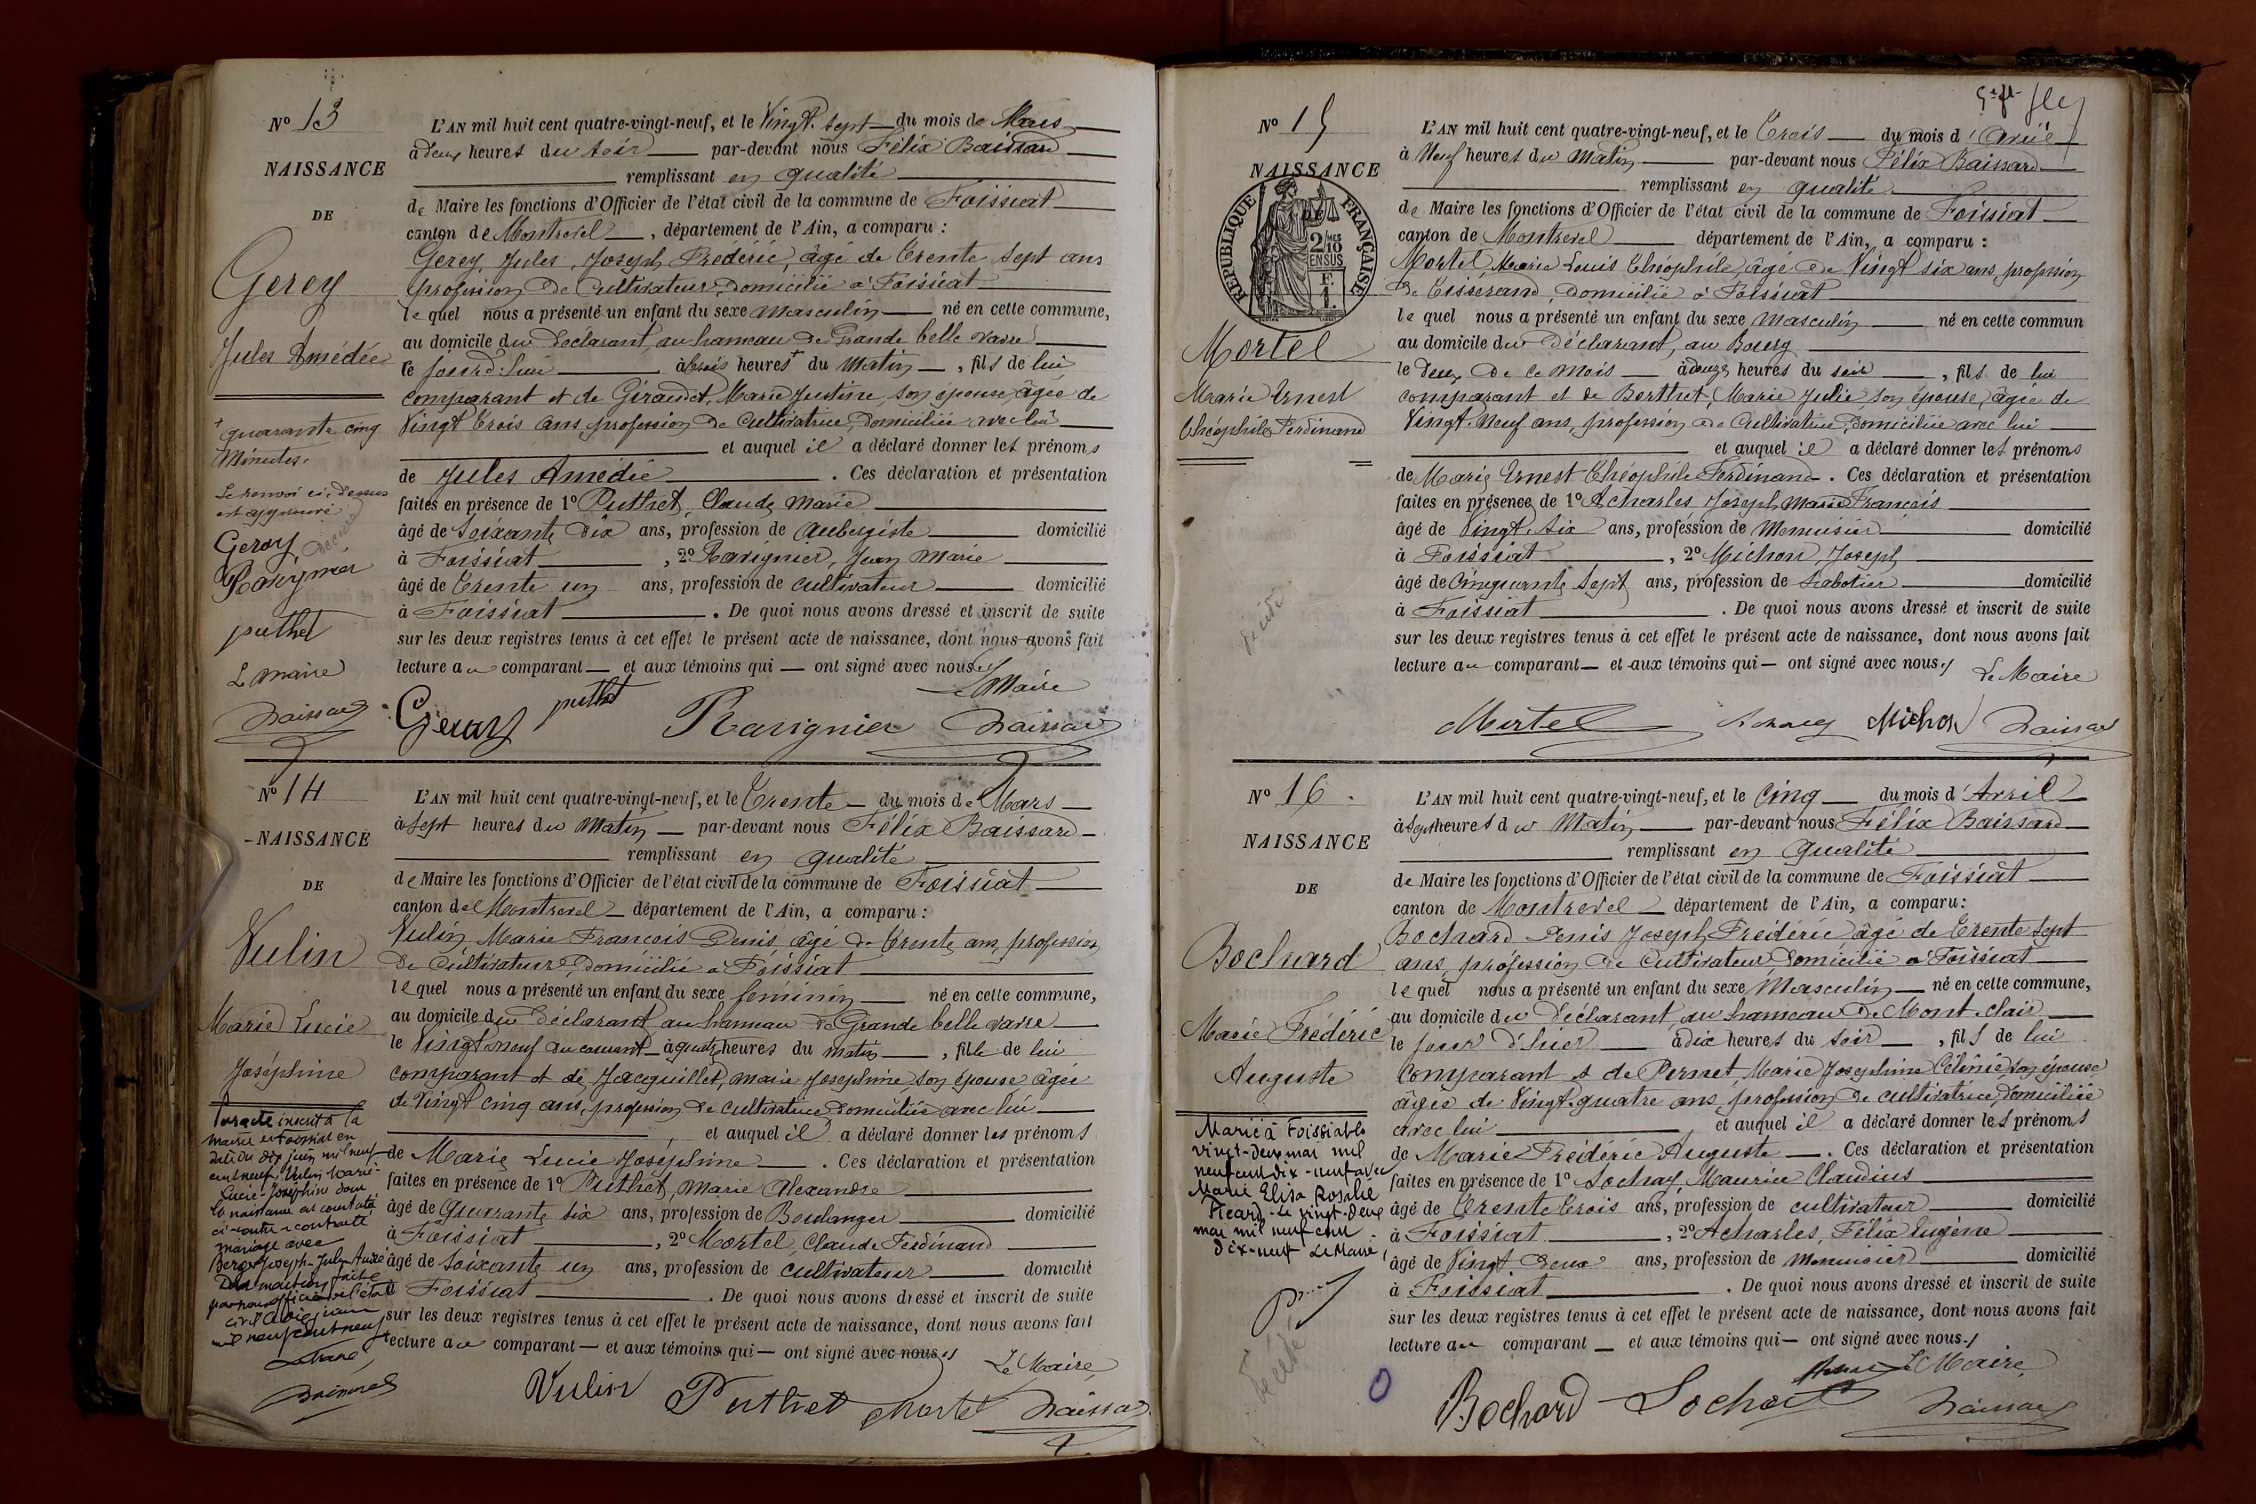 N° 13
NAISSANCE
DE
Gerey
Jules Amédée
+ quarante cinq
Minutes.
Le renvoi ci-dessus
est approuvé
Gerey
Ravignier
puthet
L maire
L'AN mil huit cent quatre-vingt-neuf, et le Vingt-sept du mois de Mars
à deux heures du soir par-devant nous Félix Baissard
remplissant en qualité
de Maire les fonctions d'Officier de l'état civil de la commune de Foissiat
canton de Montrevel, département de l'Ain, a comparu :
Gerey, Jules, Joseph Frédéric, âgé de trente sept ans
profession de Cultivateur, domicilié à Foissiat
lequel nous a présenté un enfant du sexe masculin né en cette commune,
au domicile du déclarant, au hameau de Grande belle vavre
le jour d'hui à trois heures + du Matin, fils de lui
comparant et de Giraudet, Marie Justine son épouse, âgée de
Vingt trois ans, profession de cultivatrice, domiciliée avec lui
et auquel il a déclaré donner les prénoms
de Jules Amédée. Ces déclaration et présentation
faites en présence de 1° Puthet, Claude Marie
âgé de Soixante dix ans, profession de aubergiste domicilié
à Foissiat, 2° Ravignier, Jean Marie
âgé de trente un ans, profession de cultivateur domicilié
à Foissiat. De quoi nous avons dressé et inscrit de suite
sur les deux registres tenus à cet effet le présent acte de naissance, dont nous avons fait
lecture au comparant et aux témoins qui ont signé avec nous.
Le Maire
Gerey puthet Ravignier Baissard
N° 14
NAISSANCE
DE
Vulin
Marie Lucie
Joséphine
Par acte inscrit à la
mairie de Foissiat en
date du dix juin mil neuf
cent neuf Vulin Marie-
Lucie-Joséphine dont
la naissance est constatée
ci-contre a contracté
mariage avec
Berger Joseph Jules André
Dont mention faite
par nous officier de l'état
civil
mil neuf cent neuf
L'AN mil huit cent quatre-vingt-neuf, et le Trente du mois de Mars
à Sept heures du Matin par-devant nous Félix Baissard
remplissant en qualité
de Maire les fonctions d'Officier de l'état civil de la commune de Foissiat
canton de Montrevel département de l'Ain, a comparu :
Vulin, Marie François Denis, âgé de trente ans, profession
de Cultivateur, domicilié à Foissiat
lequel nous a présenté un enfant du sexe féminin né en cette commune,
au domicile du déclarant au hameau de Grande belle vavre
le Vingt neuf du courant à quatre heures du matin, fille de lui
comparant et de Jacquillet, Marie Joséphine, son épouse âgée
de Vingt cinq ans, profession de cultivatrice domiciliée avec lui
et auquel il a déclaré donner les prénoms
de Marie Lucie Joséphine. Ces déclaration et présentation
faites en présence de 1° Puthet, Marie Alexandre
âgé de Quarante six ans, profession de Boulanger domicilié
à Foissiat, 2° Mortel, Claude Ferdinand
âgé de Soixante un ans, profession de cultivateur domicilié
à Foissiat. De quoi nous avons dressé et inscrit de suite
sur les deux registres tenus à cet effet le présent acte de naissance, dont nous avons fait
lecture au comparant et aux témoins qui ont signé avec nous.
Le Maire,
Vulin Puthet Mortel Baissard
N° 15
NAISSANCE
DE
RÉPUBLIQUE FRANÇAISE
2/10 MES
EN SUS
F.
1.
Mortel
Marie Ernest
Théophile Ferdinand
décédé
L'AN mil huit cent quatre-vingt-neuf, et le Trois du mois d'Avril
à Neuf heures du Matin par-devant nous Félix Baissard
remplissant en qualité
de Maire les fonctions d'Officier de l'état civil de la commune de Foissiat
canton de Montrevel département de l'Ain, a comparu :
Mortel Marie Louis Théophile, âgé de Vingt six ans, profession
de tisserand, domicilié à Foissiat
lequel nous a présenté un enfant du sexe Masculin né en cette commun
au domicile du déclarant, au Bourg
le deux de ce mois à douze heures du soir, fils de lui
comparant et de Berthet, Marie Julie, son épouse, âgée de
Vingt-Neuf ans, profession de Cultivatrice, domiciliée avec lui
et auquel il a déclaré donner les prénoms
de Marie Ernest Théophile Ferdinand. Ces déclaration et présentation
faites en présence de 1° Acharles Joseph Marie François
âgé de Vingt-Six ans, profession de Menuisier domicilié
à Foissiat, 2° Michon Joseph
âgé de Cinquante sept ans, profession de Sabotier domicilié
à Foissiat. De quoi nous avons dressé et inscrit de suite
sur les deux registres tenus à cet effet le présent acte de naissance, dont nous avons fait
lecture au comparant et aux témoins qui ont signé avec nous.
Le Maire
Mortel Michon Baissard
N° 16.
NAISSANCE
DE
Bochard
Marie Frédéric
Auguste
Marié à Foissiat le
vingt-deux mai mil
neuf cent dix-neuf avec
Marie Elisa Rosalie
Picard. Le vingt-deux
mai mil neuf cent
dix-neuf Le Maire,
Décédé
L'AN mil huit cent quatre-vingt-neuf, et le Cinq du mois d'Avril
à Sept heures du Matin par-devant nous Félix Baissard
remplissant en qualité
de Maire les fonctions d'Officier de l'état civil de la commune de Foissiat
canton de Montrevel département de l'Ain, a comparu :
Bochard Denis Joseph Frédéric âgé de trente Sept
ans, profession de cultivateur, domicilié à Foissiat
lequel nous a présenté un enfant du sexe Masculin né en cette commune,
au domicile du déclarant, au hameau de Mont-clair
le jour d'hier à dix heures du soir, fils de lui
comparant et de Pernet, Marie Joséphine Célénie, son épouse
âgée de Vingt-quatre ans, profession de cultivatrice, domiciliée
avec lui et auquel il a déclaré donner les prénoms
de Marie Frédéric Auguste. Ces déclaration et présentation
faites en présence de 1° Sochay, Maurice Claudius
âgé de trente trois ans, profession de cultivateur domicilié
à Foissiat, 2° Acharles, Félix Eugène
âgé de Vingt Deux ans, profession de Menuisier domicilié
à Foissiat. De quoi nous avons dressé et inscrit de suite
sur les deux registres tenus à cet effet le présent acte de naissance, dont nous avons fait
lecture au comparant et aux témoins qui ont signé avec nous.
Le Maire,
Bochard Sochay Baissard